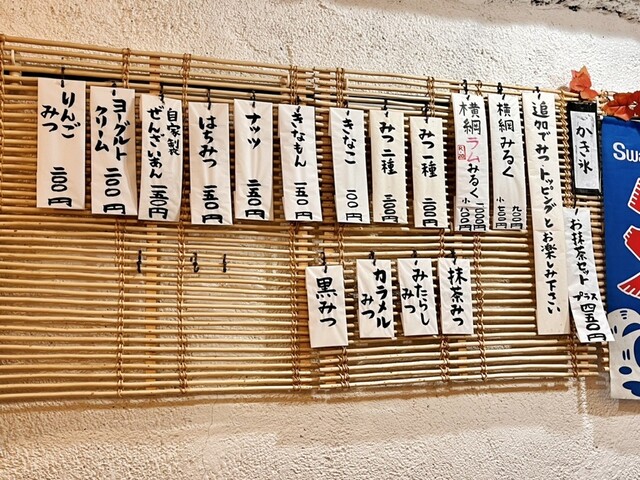 かき氷
お抹茶セット
プラス
四五〇円
追加でみつ・トッピングとお楽しみ下さい
横綱みるく
九〇〇円
横綱ラムみるく
小
みつ一種
みつ二種
きなこ
一〇〇円
きなもん
一五〇円
ナッツ
二五〇円
はちみつ
一五〇円
自家製
ぜんざいあん
ヨーグルト
クリーム
二〇〇円
りんご
みつ
二〇〇円
抹茶みつ
みたらし
みつ
カラメル
みつ
黒みつ
Swa